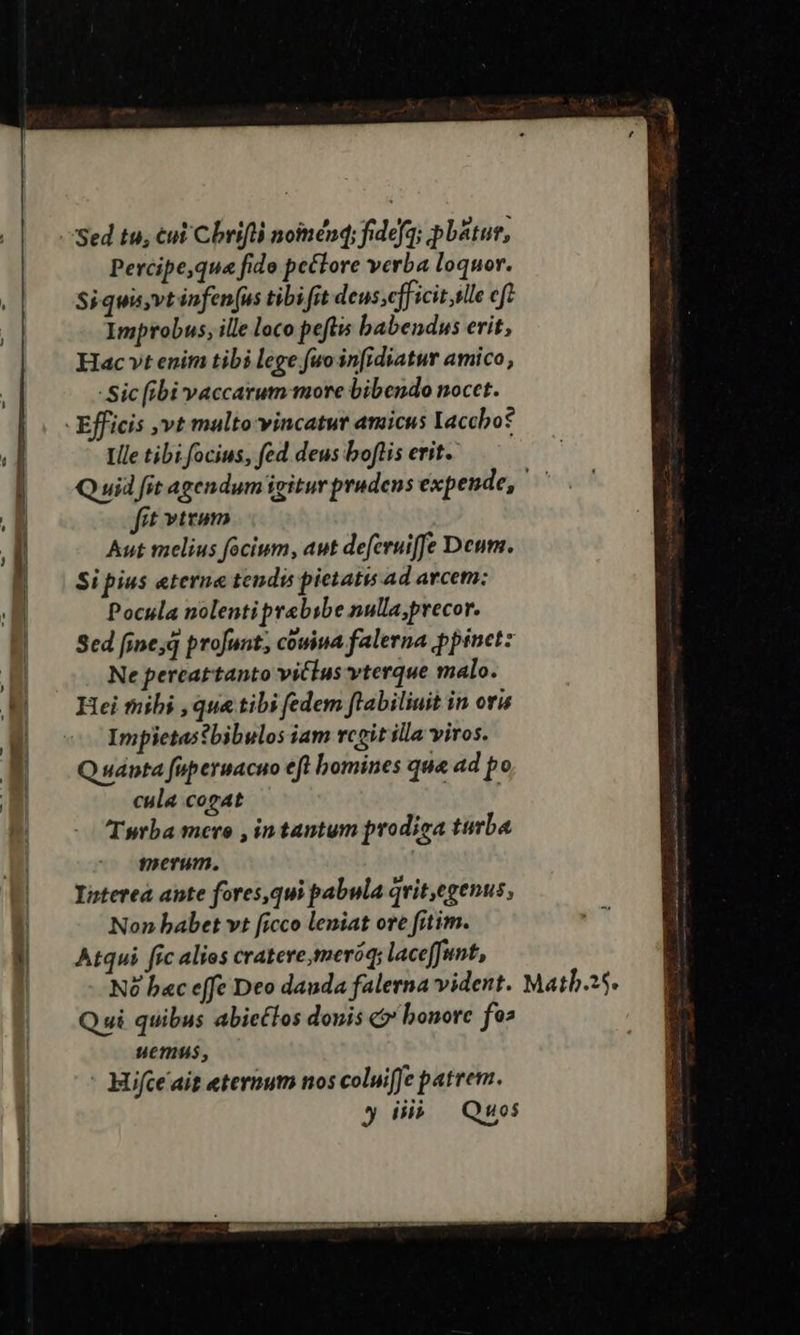 Sed tu, cui Chriſti noménq; fideſq; ꝓbãtur,
Percipe,quæ fido pectore verba loquor.
Si quis,vt infenſus tibi ſit deus,efficit,ille eſt
Improbus, ille loco peſtis habendus erit,
Hac vt enim tibi lege ſuo inſidiatur amico,
Sic ſibi vaccarum more bibendo nocet.
Efficis ,vt multo vincatur amicus Iaccho?
Ille tibi ſocius, ſed deus hoſtis erit.
Quid ſit agendum igitur prudens expende,
ſit vtrum
Aut melius ſocium, aut deſeruiſſe Deum.
Si pius æternæ tendis pietatis ad arcem:
Pocula nolenti præbibe nulla,precor.
Sed ſine,q̃ proſunt, cõuiua falerna ꝓpinet:
Ne pereat tanto victus vterque malo.
Hei mihi , quæ tibi ſedem ſtabiliuit in oris
Impietas?bibulos iam regit illa viros.
Quánta ſuperuacuo eſt homines quæ ad po
cula cogat
Turba mero , in tantum prodiga turba
merum.
Interea ante fores,qui pabula q̃rit,egenus,
Non habet vt ſicco leniat ore ſitim.
Atqui ſic alios cratere,meróq; laceſſunt,
Nõ hæc eſſe Deo danda falerna vident. Math.25.
Qui quibus abiectos donis & honore fo⸗
uemus,
Hiſce ait æternum nos coluiſſe patrem.
y iiii Quos